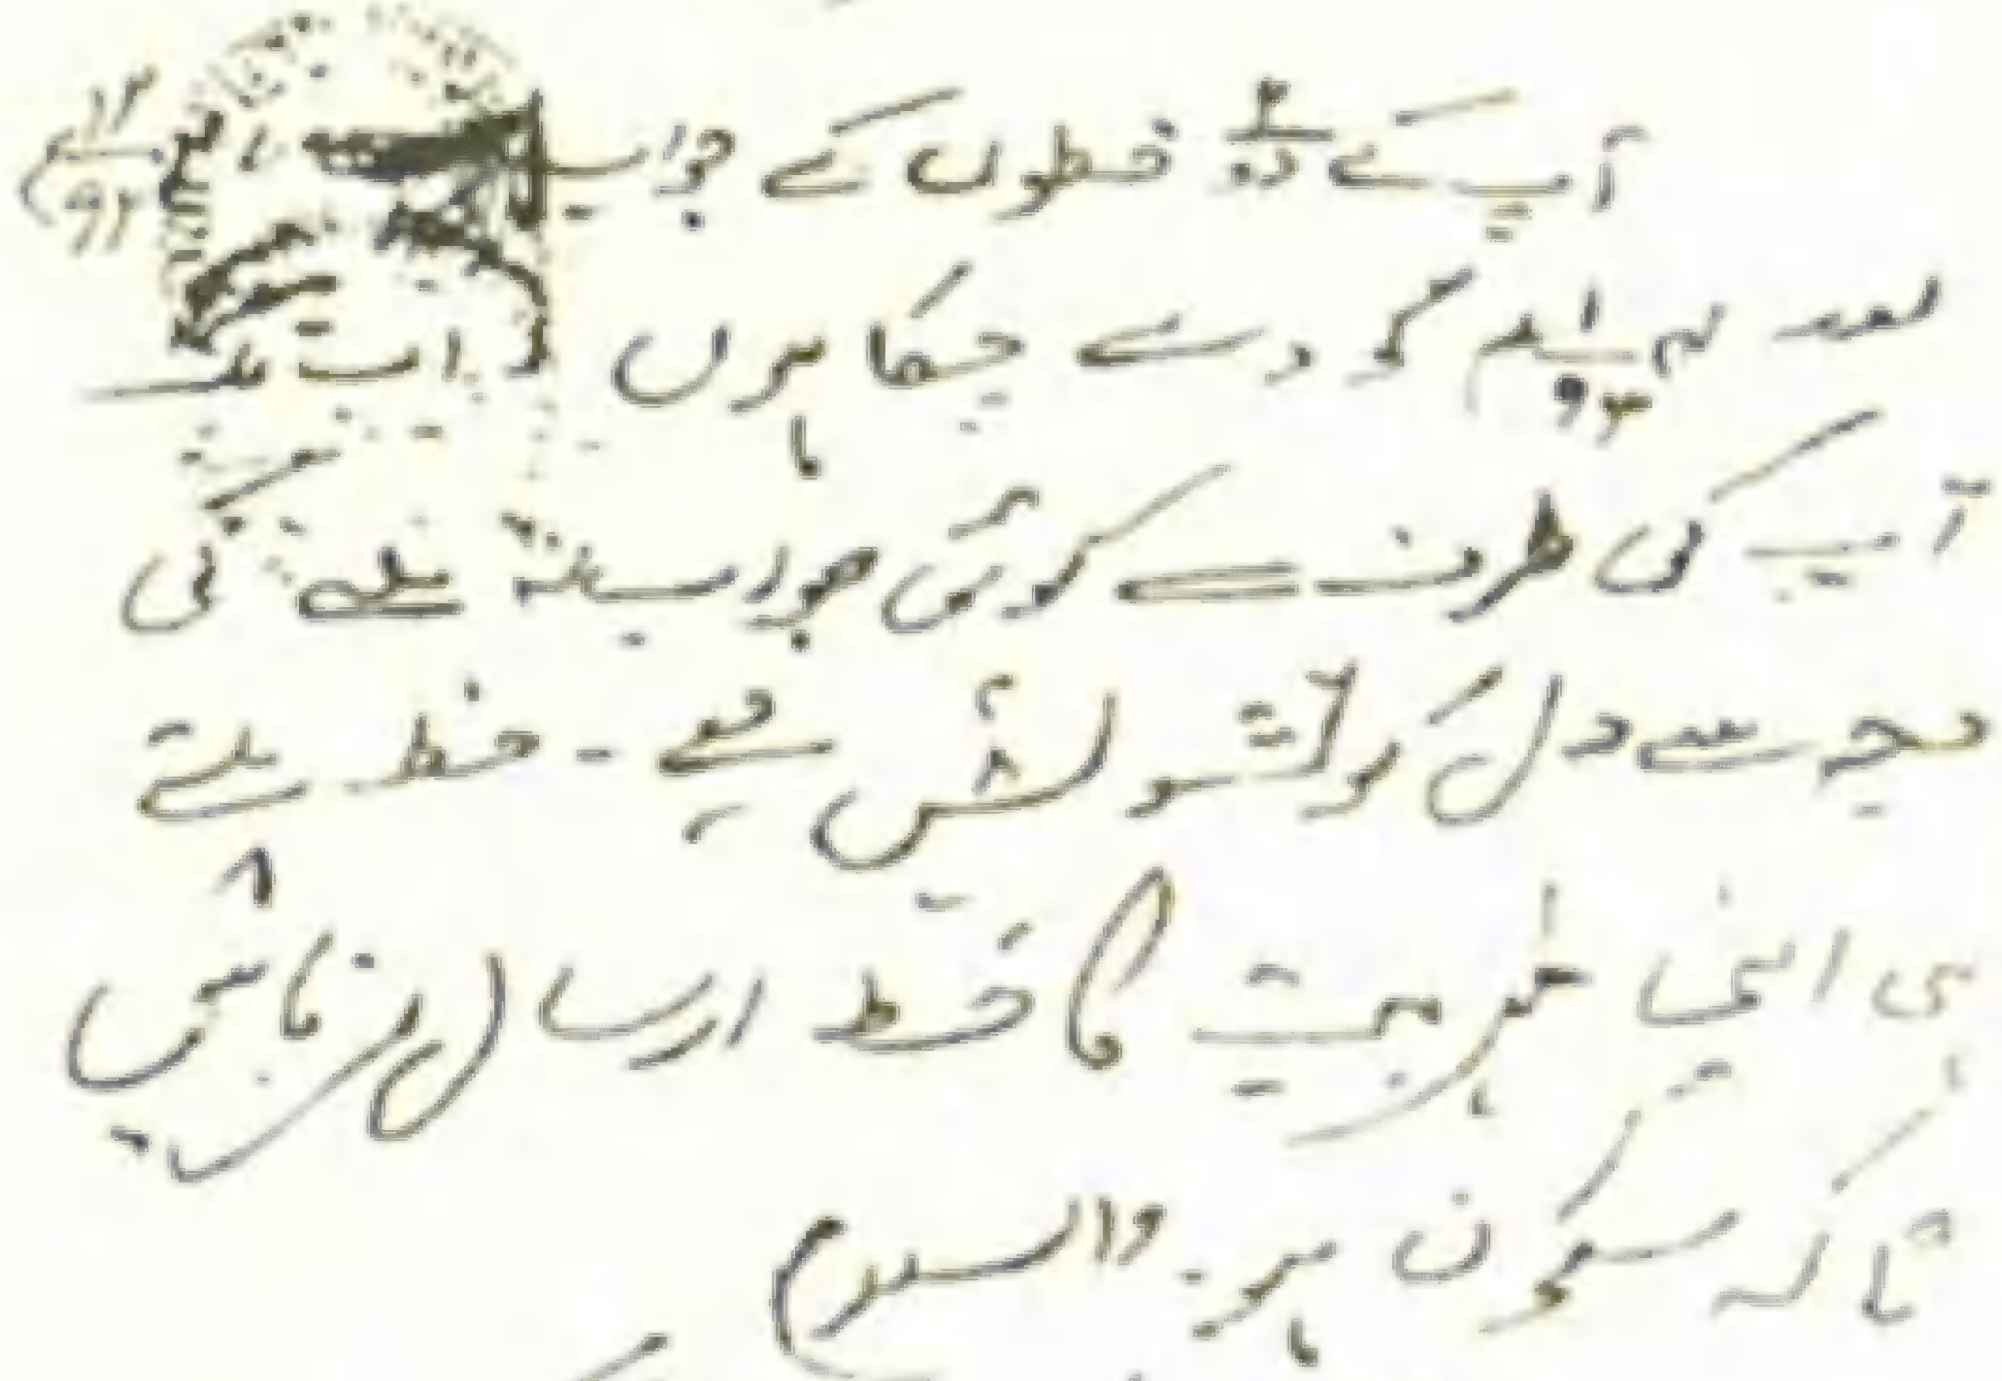 آپ کے ۲ دو خطوں کے جواب
کو دے چکا ہوں
آپ کی طرف سے کوئی جواب نہ ملنے کی
وجہ سے دل کو تشویش ہے - خط ملتے
ہی اپنی خیریت کا خط ارسال فرمائیں
تاکہ سکون ہو - والسلام